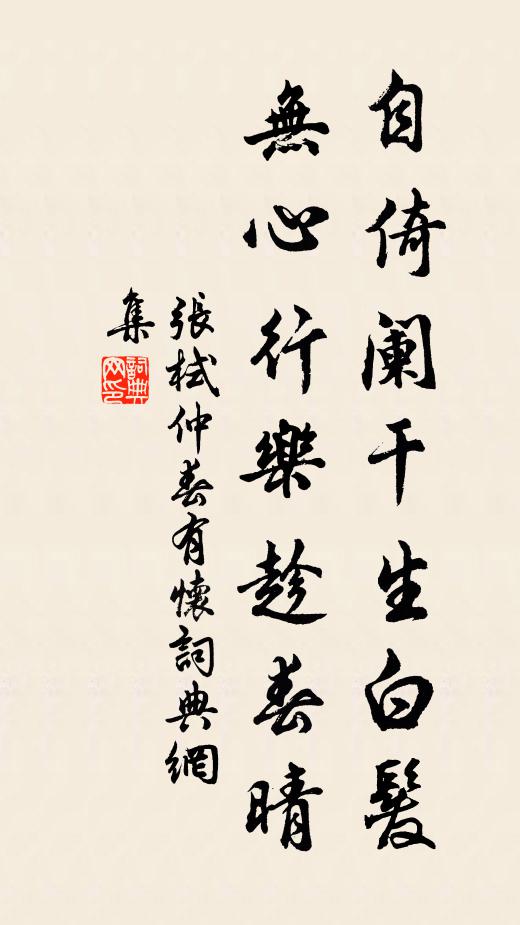 自倚阑干生白髮
無心行樂趁春晴
張栻仲春有懷詞典網
集
詞典
网印